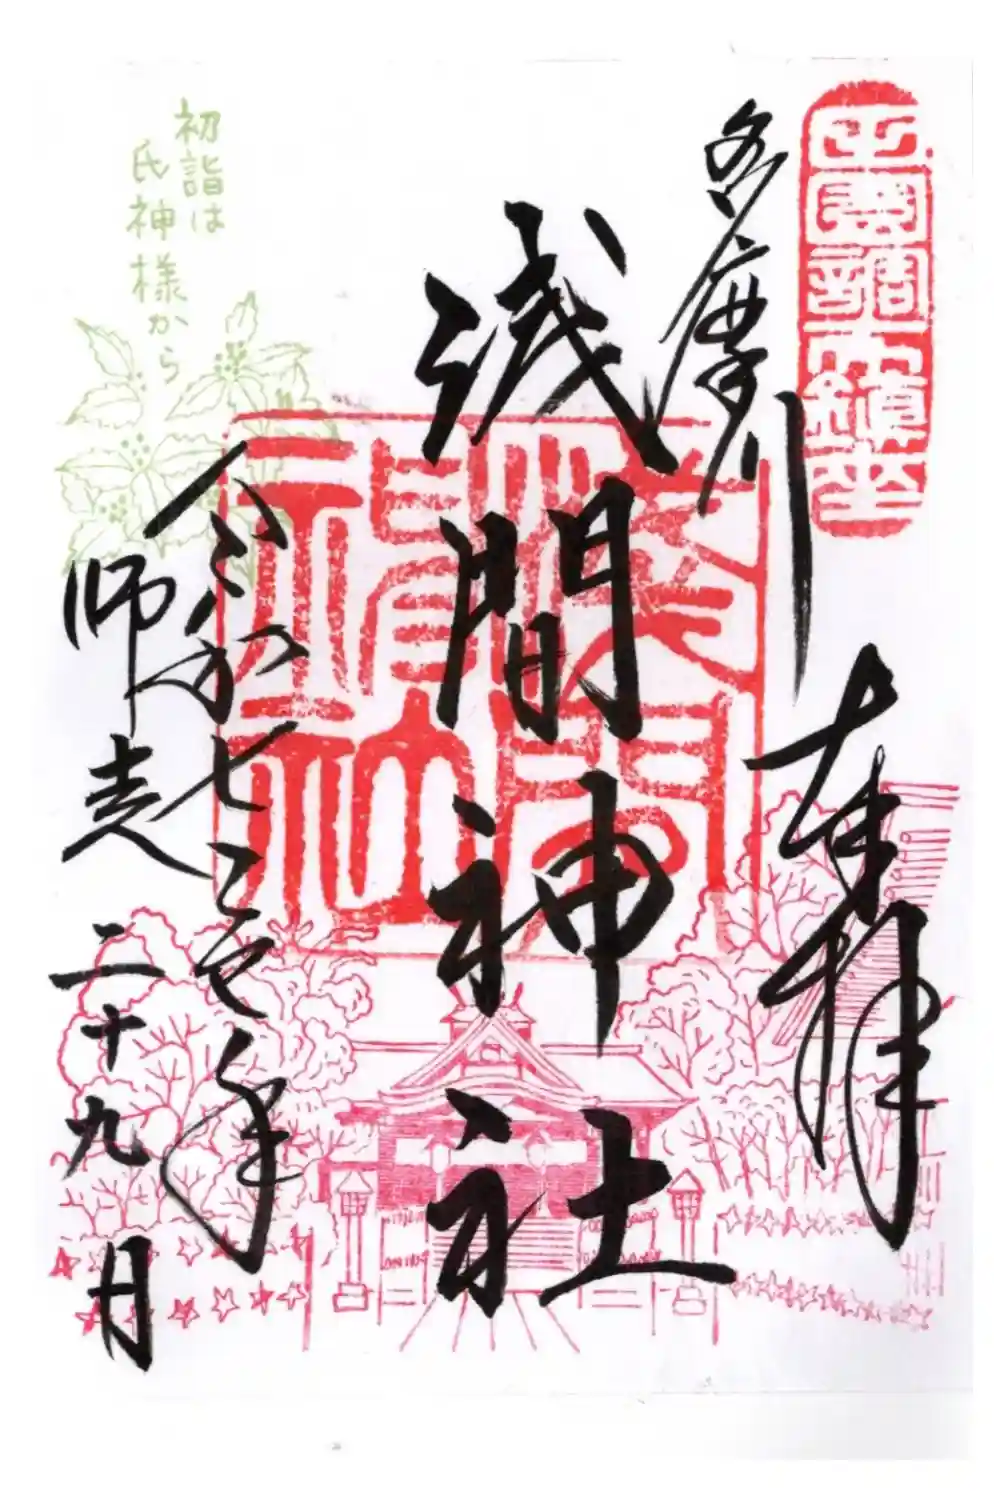 田園調布鎮座
多摩川
奉拝
浅間神社
淺間
神社
令和七乙巳年
師走二十九日
初詣は
氏神様から